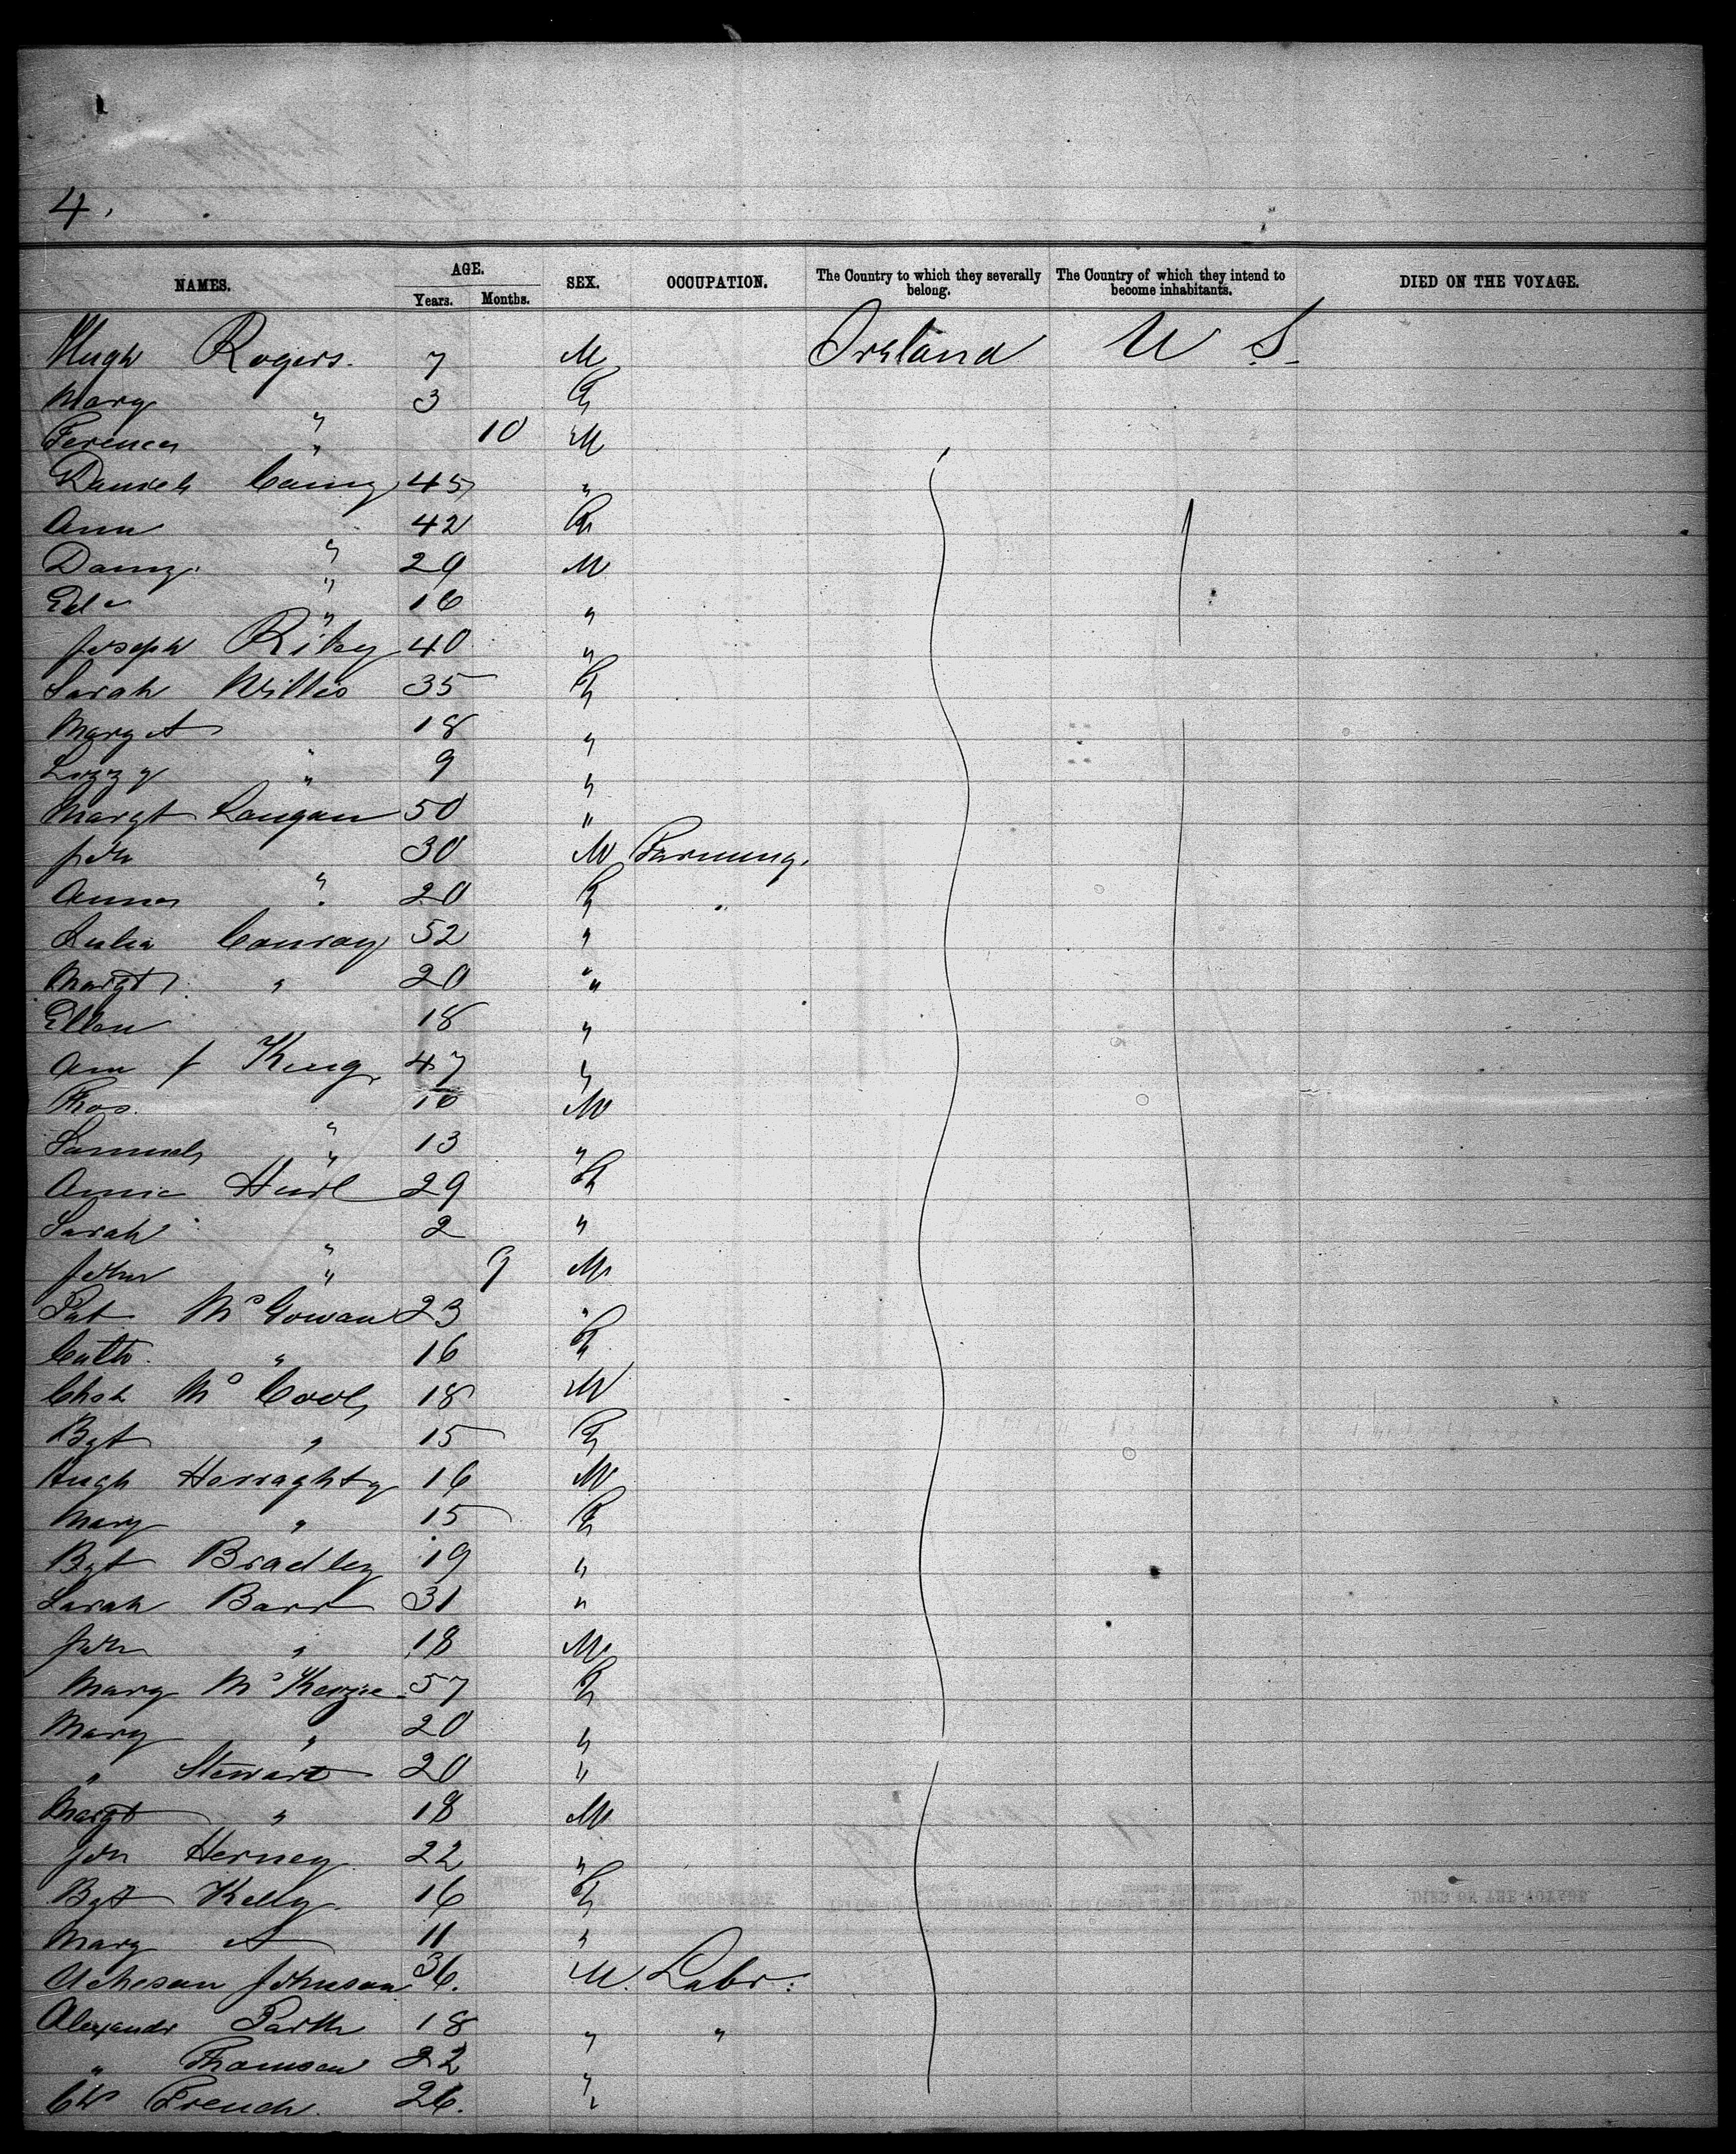 4.
NAMES. AGE. Years. Months. SEX. OCCUPATION. The Country to which they severally belong. The Country of which they intend to become inhabitants. DIED ON THE VOYAGE.
Hugh Rogers. 7 M Ireland U S.
Mary " 3
" 10 M
45 "
Ann " 42
" 29 M
" 16 "
Joseph Riley 40 "
Sarah Willis 35
Marg A 18 "
Lizzy " 9 "
Margt Langan 50 "
John " 30 M Farming.
Annie " 20 "
Julia Conway 52 "
Margt " 20 "
Ellen 18 "
Ann J King 47 "
Thos. " 10 M
Samuel " 13 "
Annie Hurl 29
Sarah " 2 "
John " 9 M
Pat McGowan 23 "
Cath. " 16
Chas McCool 18 M
Bgt " 15
Hugh Herraghty 16 M
Mary " 15
Bgt Bradley 19 "
Sarah Barr 31 "
John " 18 M
Mary McKenzie 57
Mary " 20 "
" Stewart 20 "
Margt " 18 M
Jon Herney 22 "
Bgt Kelly 16
Mary A 11 "
Acheson Johnson 36. M. Labr.
Alexandr 18 " "
" Thomson 22 "
French. 26. "